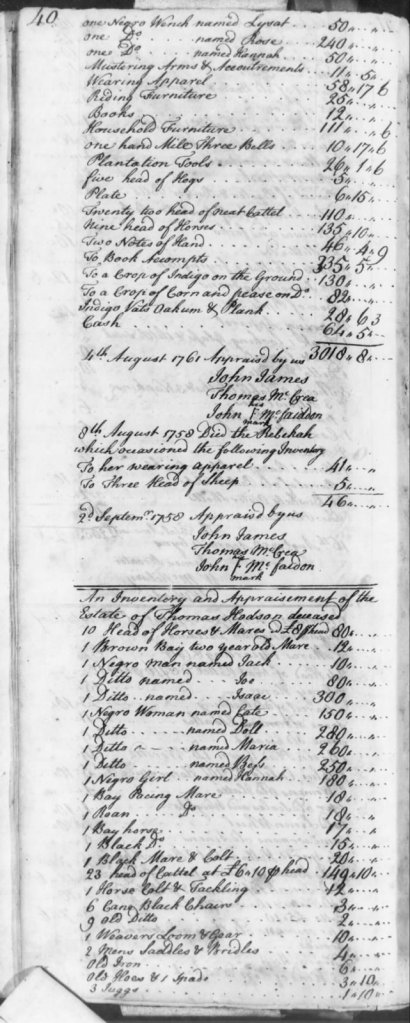 40.
one Negro Wench named Lysat . . . 50 " "
one Do. named Rose . . . 240 " "
one Do. named Hannah . . . 50 " "
Mustering Arms & Accoutrements . . . 11 " 5 "
Wearing Apparel . . . 58 " 17 6
Riding Furniture . . . 25 " "
Books . . . 12 " "
Household Furniture . . . 111 " " 6
one hand Mill Three Bells . . . 10 " 17 " 6
Plantation Tools . . . 26 " 1 " 6
five head of Hogs . . . 5 " "
Plate . . . 6 " 15 "
Twenty two head of neat Cattel . . . 110 " "
Nine head of Horses . . . 135 " 10 "
Two Notes of Hand . . . 46 " 4 " 9
To Book Accompts . . . 335 " 5 "
To a Crop of Indigo on the Ground . . . 130 " "
To a Crop of Corn and pease on Do. . . . 82 " "
Indigo Vats Oakum & Plank . . . 28 " 6 3
Cash . . . 64 " 5 "
4th August 1761 Appraisd by us 3018 " 8 "
John James
Thomas McCrea
his
John F McFaddon
mark
8th August 1758 Died the Rebekah
which ocasioned the following Inventory
To her wearing apparel . . . 41 " "
To Three Head of Sheep . . . 5 " "
46 " "
2d Septemr 1758 Appraisd by us
John James
Thomas McCrea
John F McFaidon
mark
An Inventory and Appraisement of the
Estate of Thomas Hodson deceased
10 Head of Horses & Mares @ £8 p head 80 " "
1 Brown Bay two year old Mare 12 " "
1 Negro man named Jack . . . 10 " "
1 Ditto named Joe . . . 80 " "
1 Ditto named Isaac . . . 300 " "
1 Negro Woman named Cate . . . 150 " "
1 Ditto named Doll . . . 280 " "
1 Ditto named Maria . . . 260 " "
1 Ditto named Bess . . . 250 " "
1 Negro Girl named Hannah . . . 180 " "
1 Bay Pacing Mare . . . 18 " "
1 Roan Do. . . . 18 " "
1 Bay horse . . . 17 " "
1 Black Do. . . . 15 " "
1 Black Mare & Colt . . . 20 " "
23 head of Cattel at £6 " 10 p head 149 " 10 "
1 Horse Colt & Tackling . . . 12 " "
6 Cane Black Chairs . . . 3 " "
9 old Ditto . . . 2 " "
1 Weavers Loom & Gear . . . 10 " "
2 Mens Saddles & Bridles . . . 4 " "
Old Iron . . . 6 " "
Old Hoes & 1 Spade . . . 3 " 10 "
3 Juggs . . . 1 " 10 "